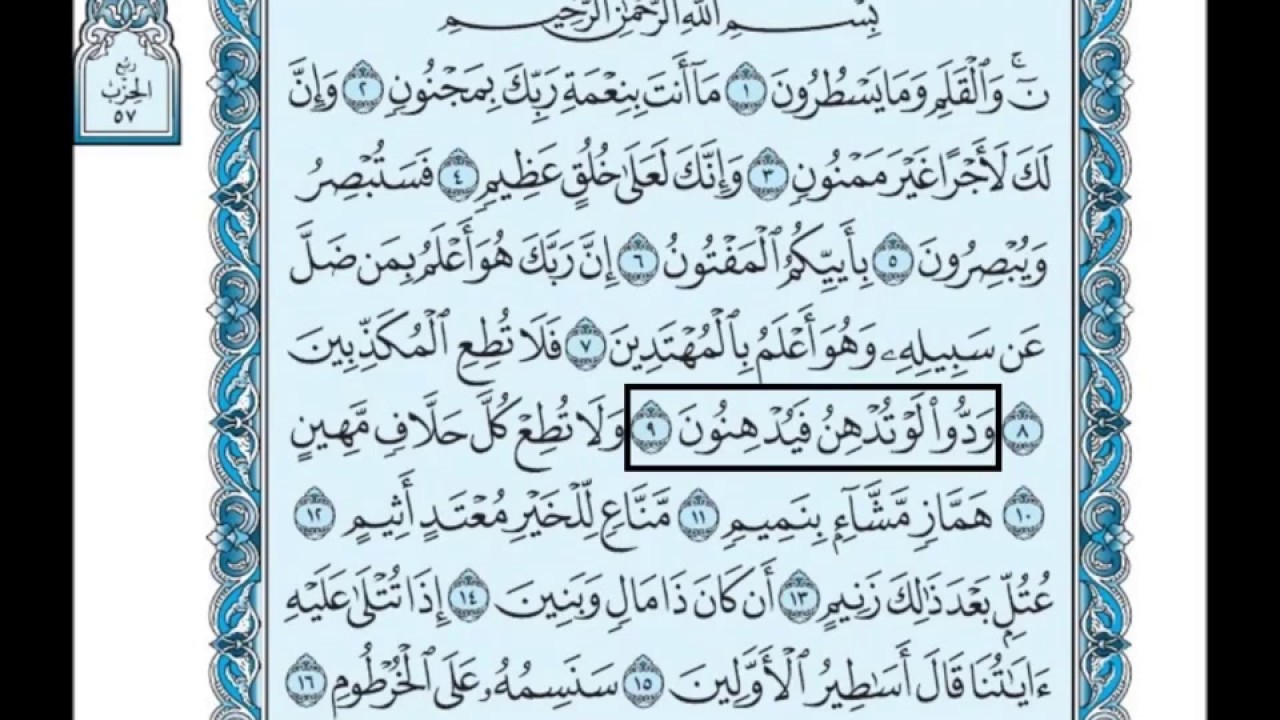 بِسْمِ اللَّهِ الرَّحْمَٰنِ الرَّحِيمِ
رُبْع
الحِزْبُ
٥٧
نٓ ۚ وَٱلْقَلَمِ وَمَا يَسْطُرُونَ ١ مَآ أَنتَ بِنِعْمَةِ رَبِّكَ بِمَجْنُونٍ ٢ وَإِنَّ
لَكَ لَأَجْرًا غَيْرَ مَمْنُونٍ ٣ وَإِنَّكَ لَعَلَىٰ خُلُقٍ عَظِيمٍ ٤ فَسَتُبْصِرُ
وَيُبْصِرُونَ ٥ بِأَييِّكُمُ ٱلْمَفْتُونُ ٦ إِنَّ رَبَّكَ هُوَ أَعْلَمُ بِمَن ضَلَّ
عَن سَبِيلِهِۦ وَهُوَ أَعْلَمُ بِٱلْمُهْتَدِينَ ٧ فَلَا تُطِعِ ٱلْمُكَذِّبِينَ
٨ وَدُّوا۟ لَوْ تُدْهِنُ فَيُدْهِنُونَ ٩ وَلَا تُطِعْ كُلَّ حَلَّافٍ مَّهِينٍ
١٠ هَمَّازٍ مَّشَّآءٍۭ بِنَمِيمٍ ١١ مَّنَّاعٍ لِّلْخَيْرِ مُعْتَدٍ أَثِيمٍ ١٢
عُتُلٍّۭ بَعْدَ ذَٰلِكَ زَنِيمٍ ١٣ أَن كَانَ ذَا مَالٍ وَبَنِينَ ١٤ إِذَا تُتْلَىٰ عَلَيْهِ
ءَايَٰتُنَا قَالَ أَسَٰطِيرُ ٱلْأَوَّلِينَ ١٥ سَنَسِمُهُۥ عَلَى ٱلْخُرْطُومِ ١٦